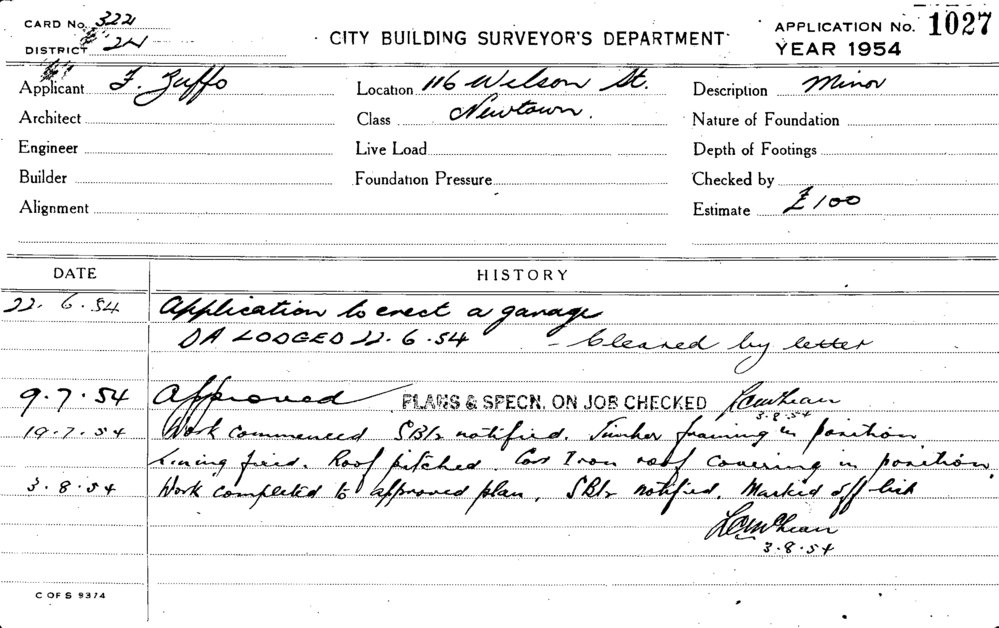 CARD No. 322
DISTRICT 24
CITY BUILDING SURVEYOR'S DEPARTMENT
APPLICATION No. 1027
YEAR 1954
Applicant F. Zuffo
Location 116 Wilson St.
Description Minor
Architect
Class Newtown.
Nature of Foundation
Engineer
Live Load
Depth of Footings
Builder
Foundation Pressure
Checked by
Alignment
Estimate £100
DATE HISTORY
22.6.54 Application to erect a garage
DA LODGED 22.6.54 - Cleared by letter
9.7.54 Approved PLANS & SPECN. ON JOB CHECKED
3.8.54
19.7.54 Work commenced notified. Timber framing in position.
Lining fixed. Roof pitched. Cor Iron roof covering in position.
3.8.54 Work completed to approved plan. notified. Marked off list
3.8.54
C OF S 9374